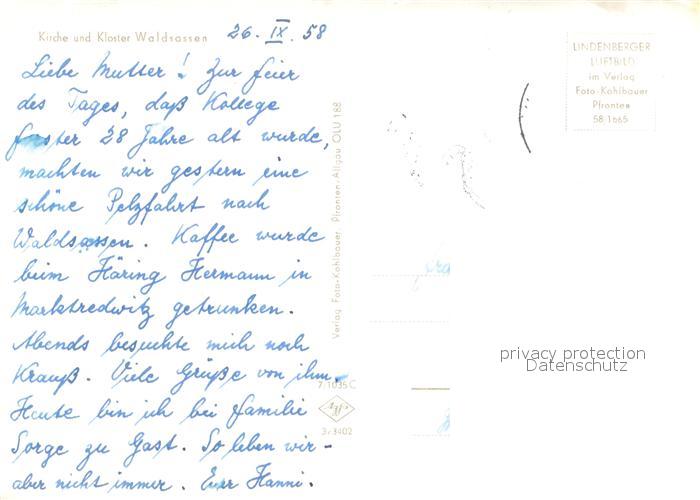 Kirche und Kloster Waldsassen 26. IX. 58
Liebe Mutter! Zur Feier
des Tages, daß Kollege
28 Jahre alt wurde,
machten wir gestern eine
schöne Pelzfahrt nach
Waldsassen. Kaffee wurde
beim Häring Hermann in
Marktredwitz getrunken.
Abends besuchte mich noch
Krauß. Viele Grüße von ihm.
Heute bin ich bei Familie
Sorge zu Gast. So leben wir -
aber nicht immer. Euer Hanni.
Verlag Foto-Kohlbauer Pfronten-Allgäu OLU 188
7/1035 C
3v3402
LINDENBERGER
LUFTBILD
im Verlag
Foto-Kohlbauer
Pfronten
58/1665
privacy protection
Datenschutz